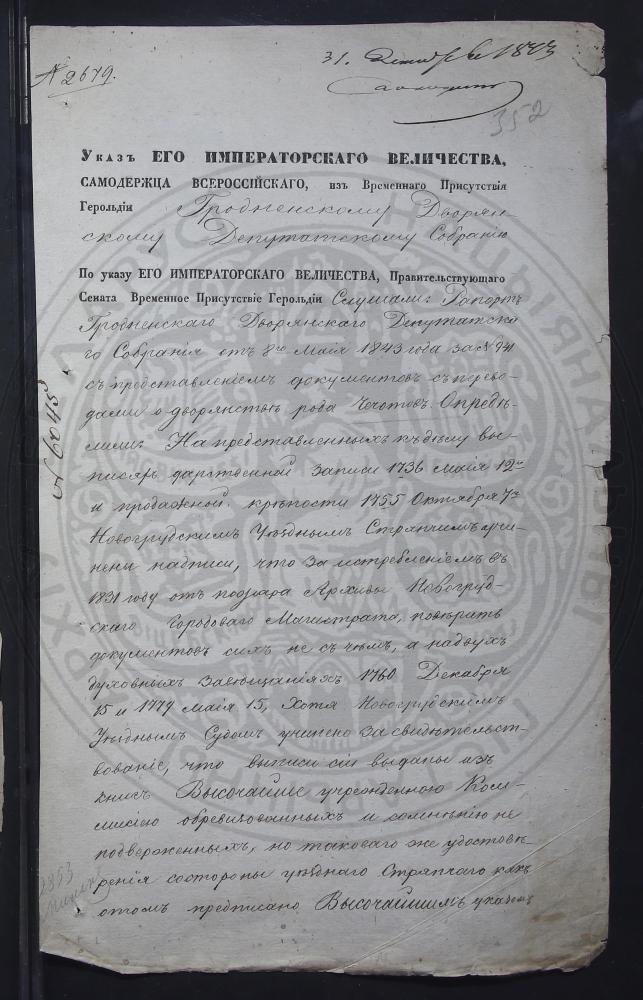 31. Декабря 1843
№ 2679.
352
Указъ ЕГО ИМПЕРАТОРСКАГО ВЕЛИЧЕСТВА,
САМОДЕРЖЦА ВСЕРОССІЙСКАГО, изъ Временнаго Присутствія
Герольдіи Гродненскому Дворян-
скому Депутатскому Собранію
По указу ЕГО ИМПЕРАТОРСКАГО ВЕЛИЧЕСТВА, Правительствующаго
Сената Временное Присутствіе Герольдіи Слушали: Рапортъ
Гродненскаго Дворянскаго Депутатска
го Собранія отъ 8го Маія 1843 года за № 941
съ представленіемъ документовъ съ перево-
дами о дворянствѣ рода Чечотовъ. Опредѣ-
лили: На представленныхъ къ дѣлу вы-
писяхъ дарственной записи 1736 Маія 12го
и продажной крѣпости 1755 Октября 7го
Новогрудскимъ Уѣзднымъ Стряпчимъ учи-
нены надписи, что за истребленіемъ въ
1831 году отъ пожара Архивы Новогруд-
скаго Городоваго Магистрата, повѣрить
документовъ сихъ не съ чѣмъ, а на двухъ
духовныхъ завѣщаніяхъ 1760 Декабря
15 и 1779 Маія 15, хотя Новогрудскимъ
Уѣзднымъ Судомъ учинено засвидѣтельст-
вованіе, что выписи сіи выданы изъ
книгъ Высочайше учрежденною Ком-
мисіею обревизованныхъ и сомнѣнію не
подверженныхъ, но таковаго же удостовѣ-
ренія со стороны уѣзднаго Стряпчаго какъ
о томъ предписано Высочайшимъ указомъ